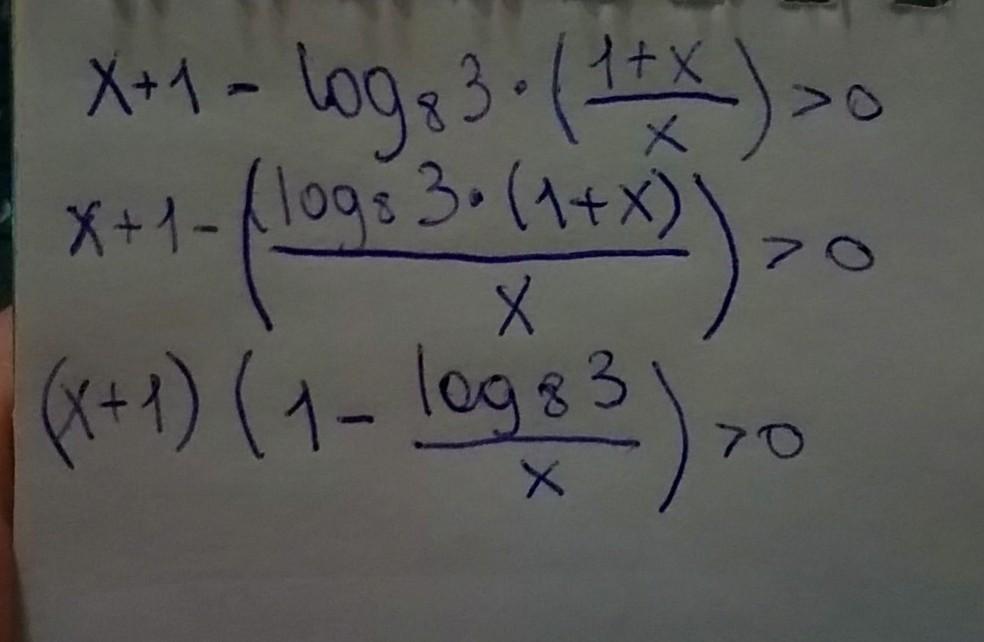 x+1 - log₈3·((1+x)/x) > 0
x+1 - ((log₈3·(1+x))/x) > 0
(x+1)(1 - (log₈3)/x) > 0